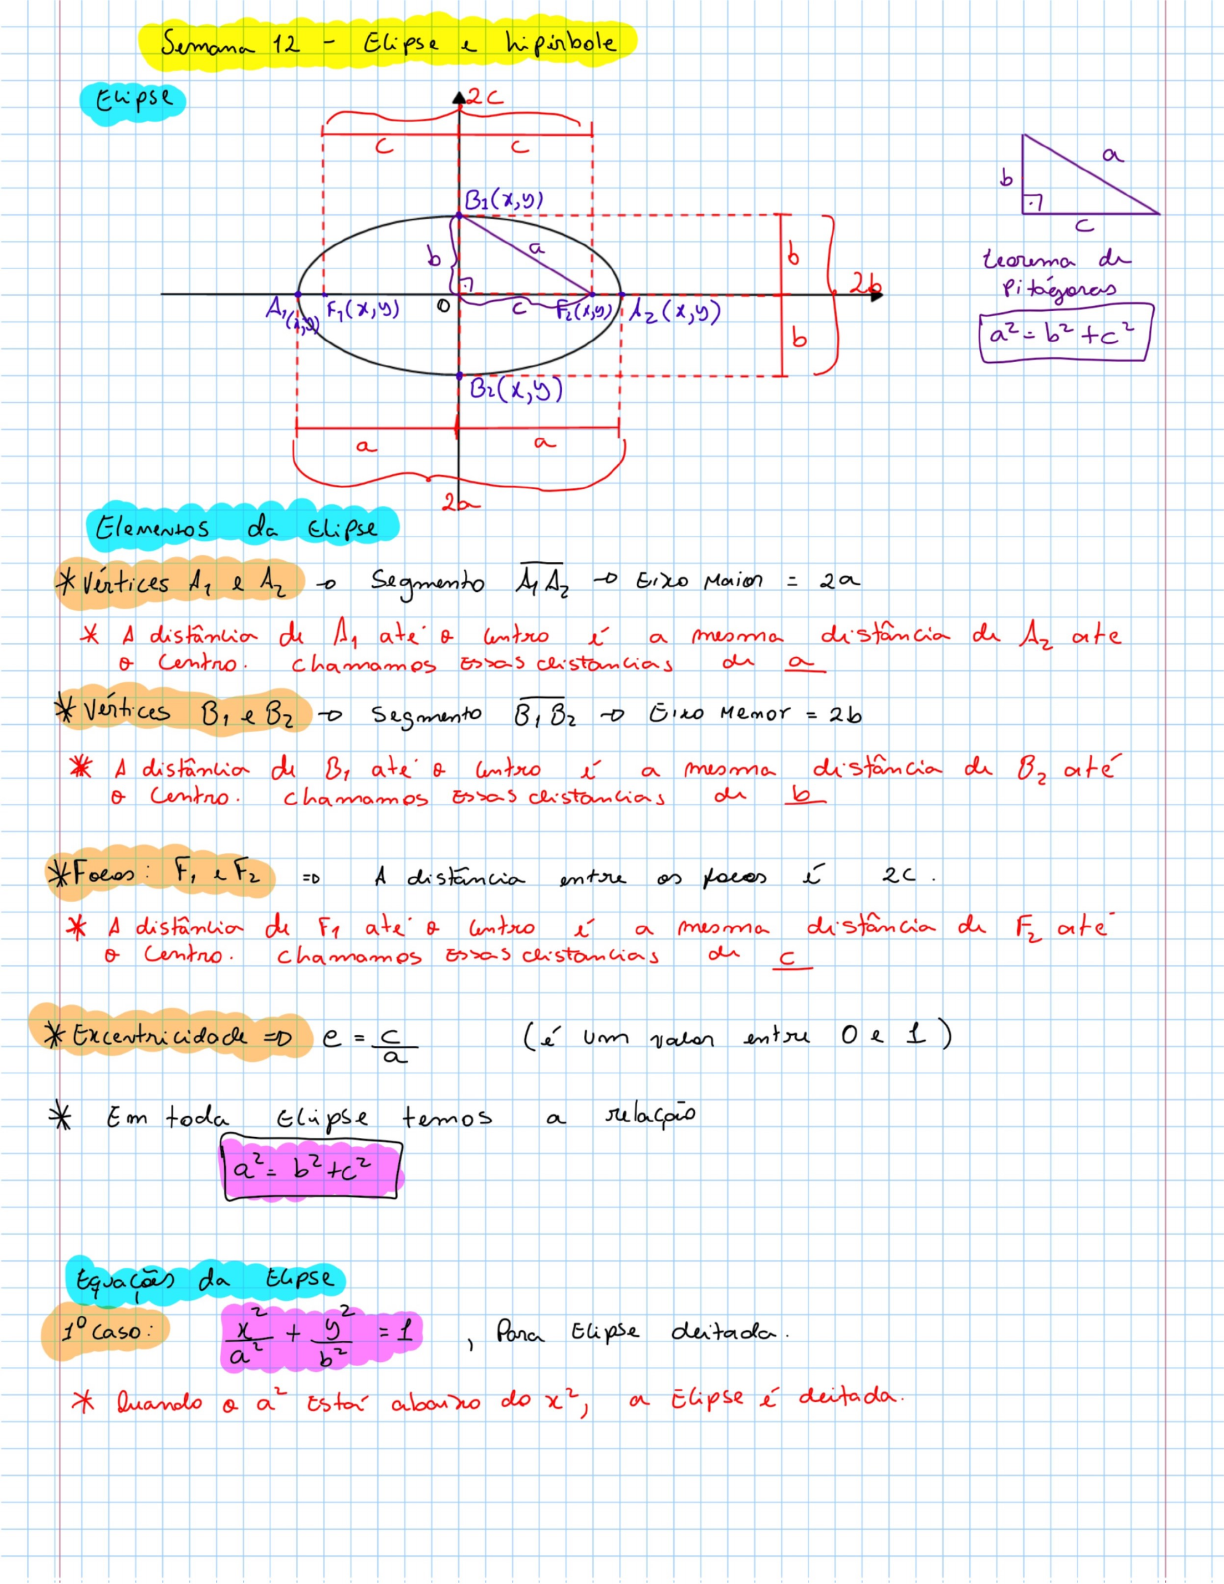 Semana 12 - Elipse e hipérbole
Elipse
2c
c c
B1(x,y)
b a b
A1(x,y) F1(x,y) O c F2(x,y) A2(x,y) 2b
b
B2(x,y)
a a
2a
b a
c
teorema de
Pitágoras
a² = b² + c²
Elementos da Elipse
* Vértices A1 e A2 → Segmento A1A2 → Eixo Maior = 2a
* A distância de A1 até o centro é a mesma distância de A2 ate
o centro. chamamos essas distancias de a
* Vértices B1 e B2 → Segmento B1B2 → Eixo Menor = 2b
* A distância de B1 até o centro é a mesma distância de B2 até
o centro. chamamos essas distancias de b
* Focos: F1 e F2 ⇒ A distância entre os focos é 2c.
* A distância de F1 até o centro é a mesma distância de F2 até
o centro. chamamos essas distancias de c
* Excentricidade ⇒ e = c/a (é um valor entre 0 e 1)
* Em toda Elipse temos a relação
a² = b² + c²
Equações da Elipse
1º caso: x²/a² + y²/b² = 1 , Para Elipse deitada.
* Quando o a² está abaixo do x², a Elipse é deitada.